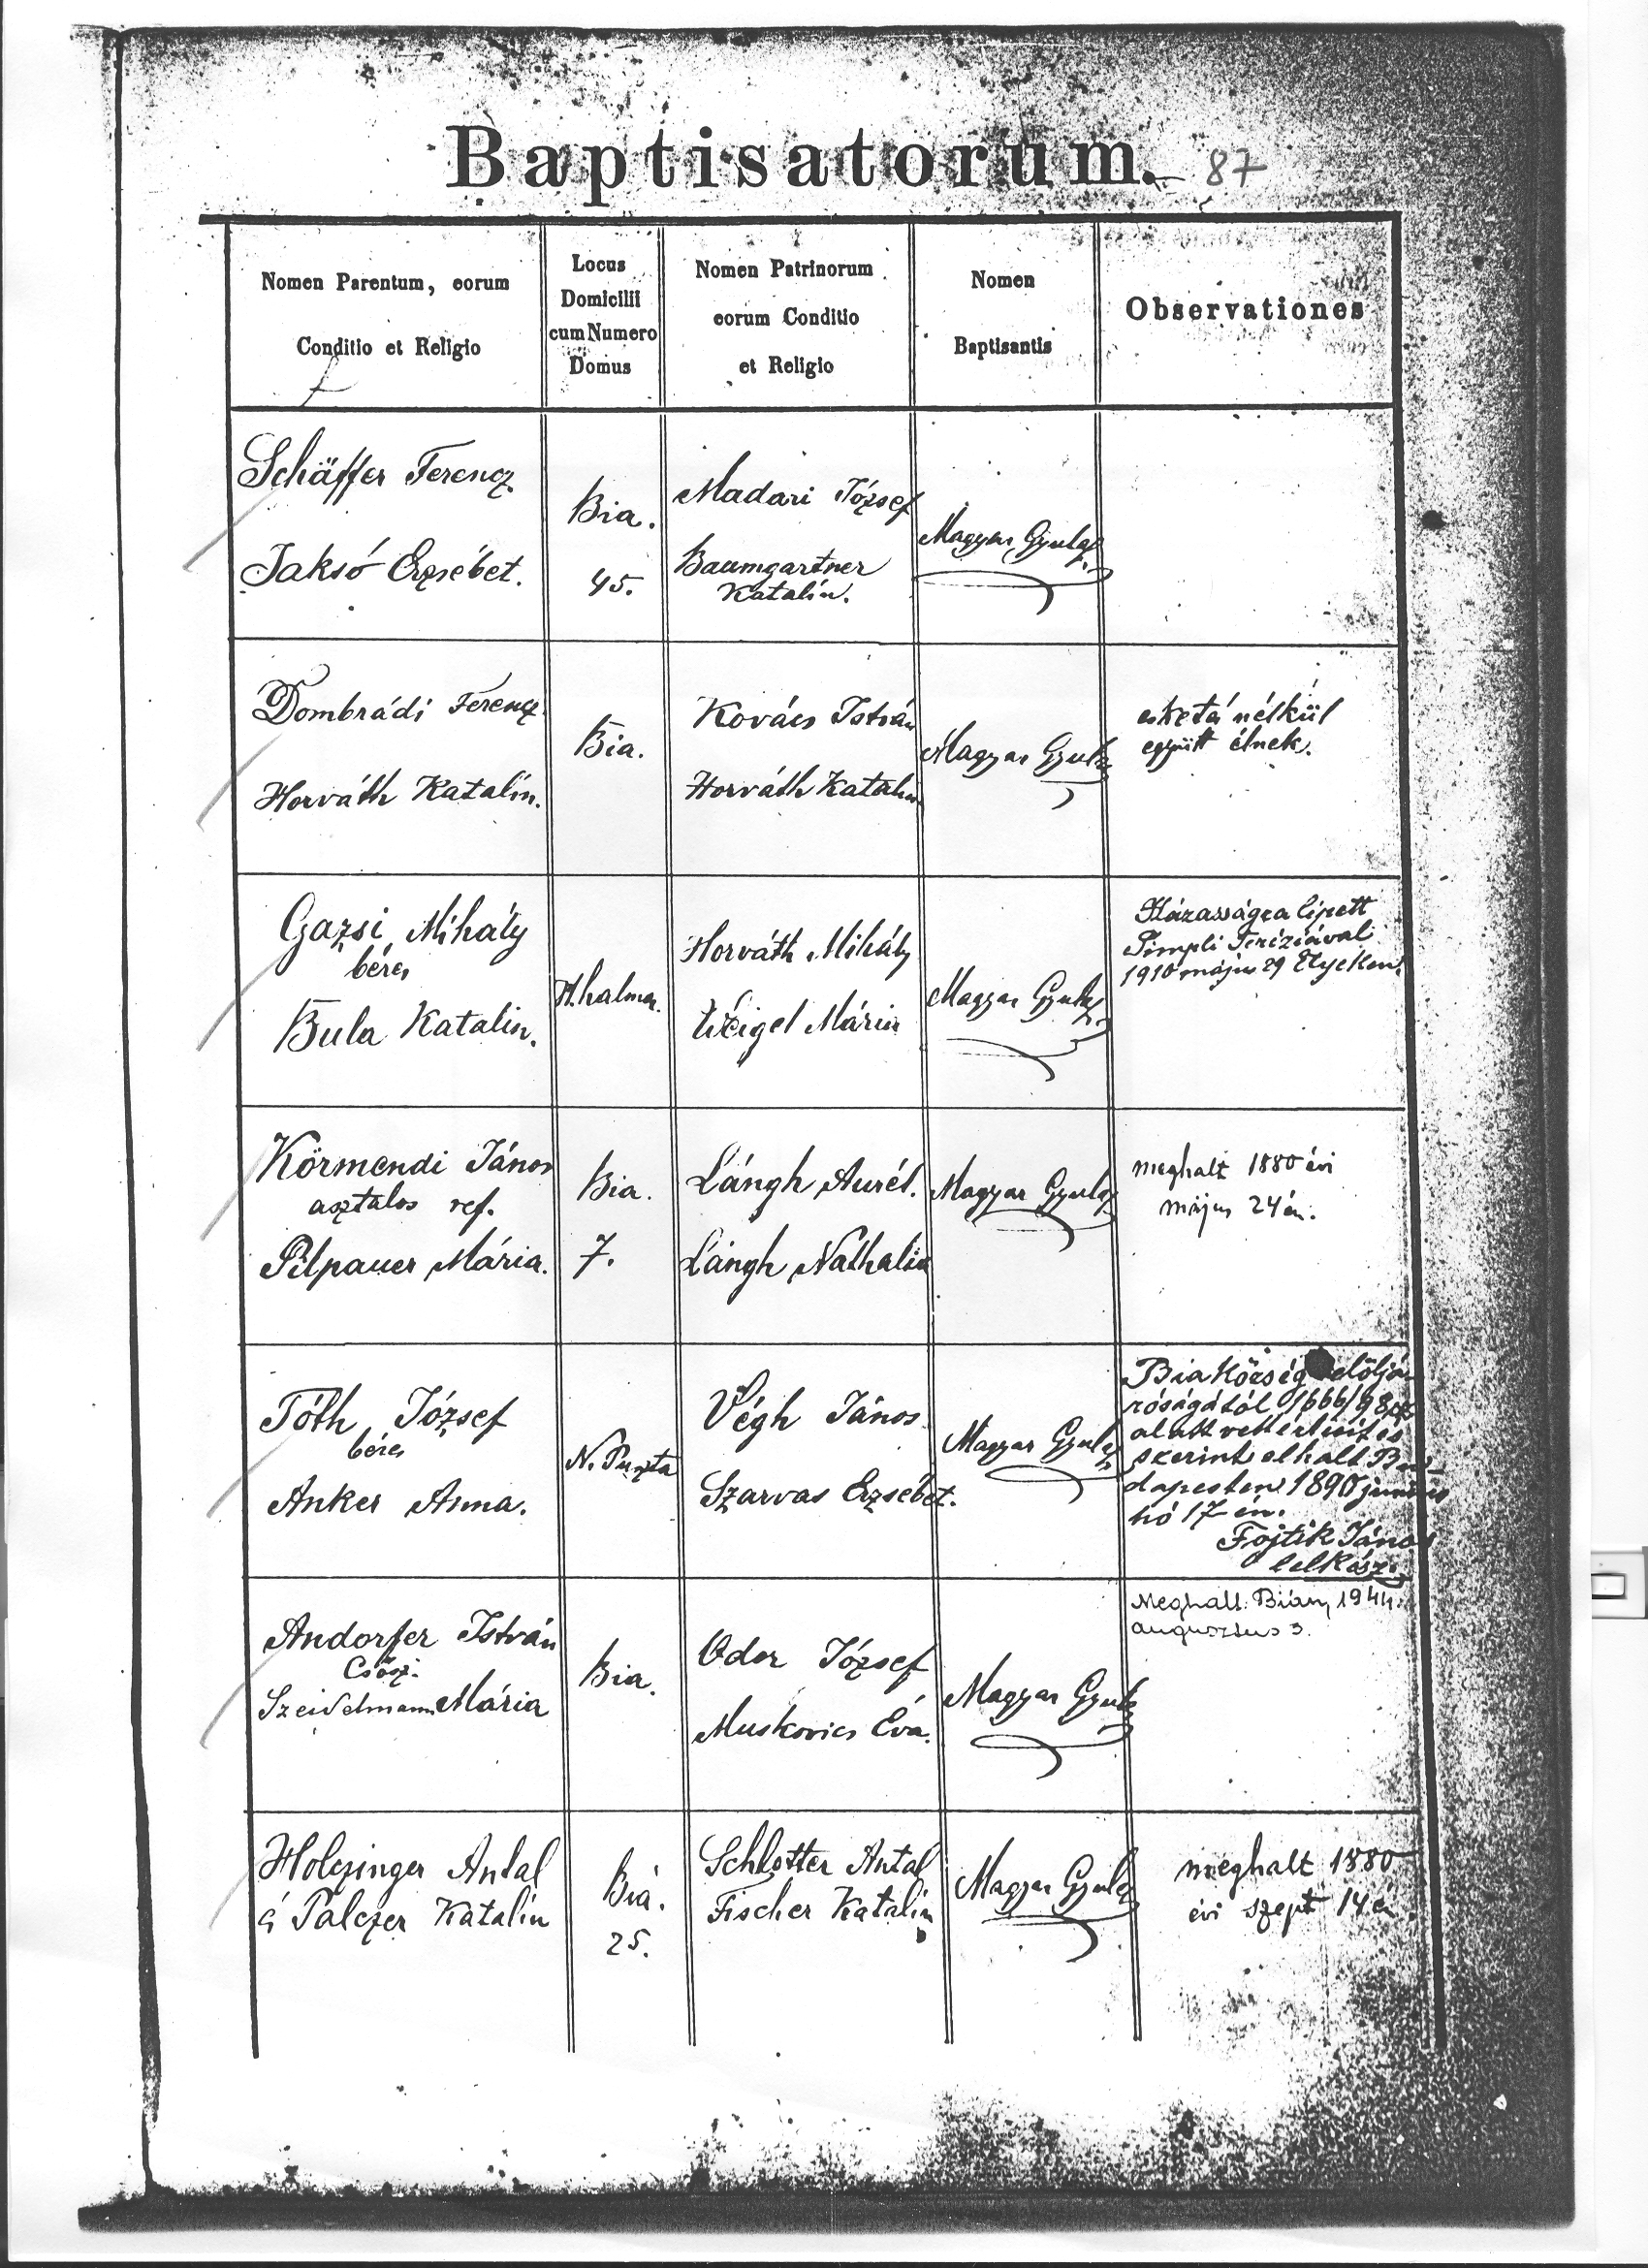 Baptisatorum. 87
Nomen Parentum, eorum
Conditio et Religio
Locus
Domicilii
cum Numero
Domus
Nomen Patrinorum
eorum Conditio
et Religio
Nomen
Baptisantis
Observationes
Schäffer Ferencz
Jaksó Erzsébet.
Bia.
45.
Madari József
Baumgartner
Katalin.
Magyar Gyula
Dombrádi Ferencz.
Horváth Katalin.
Bia.
Kovács István
Horváth Katalin
Magyar Gyula
nélkül
együtt élnek.
Gazsi Mihály
béres
Bula Katalin.
H.halma.
Horváth Mihály
Weigel Mária
Magyar Gyula
Házasságra lépett
Pimpli Teréziával
1910 május 29 Etyeken.
Körmendi János
asztalos ref.
Pilpauer Mária.
Bia.
7.
Lángh Aurél.
Lángh Nathalia
Magyar Gyula
meghalt 1880 évi
május 24én.
Tóth József
béres
Anker Anna.
N. Puszta
Végh János
Szarvas Erzsébet.
Magyar Gyula
Bia Község előljá-
róságától 1666/98
alatt vett értesítés
szerint elhalt Bu-
dapesten 1890 junius
hó 17-én.
Fojtik János
lelkész.
Andorfer István
Csősz.
Szeidelmann Mária
Bia.
Odor József
Muskovics Éva.
Magyar Gyula
Meghalt: Bián, 1944.
augusztus 3.
Holczinger Antal
és Palczer Katalin
Bia.
25.
Schlotter Antal
Fischer Katalin
Magyar Gyula
meghalt 1880
évi szept 14én.